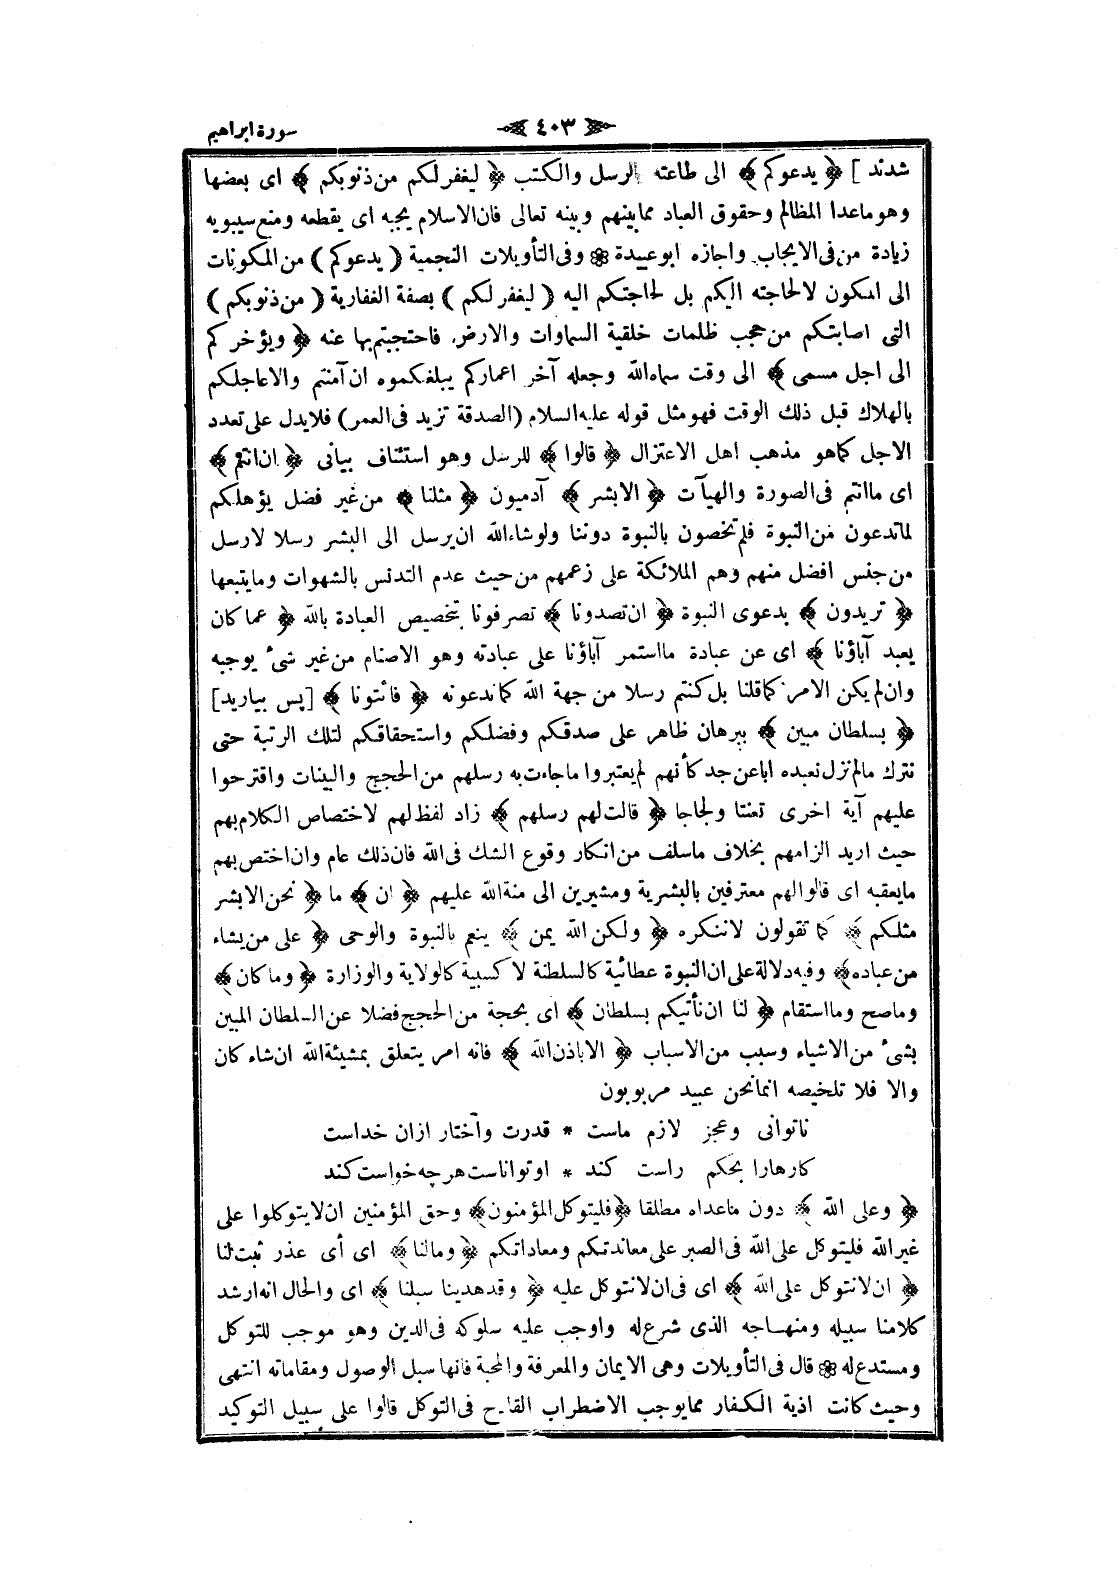 سورة ابراهيم
٤٠٣
شدند ] ﴿ يدعوكم ﴾ الى طاعته بالرسل والكتب ﴿ ليغفرلكم من ذنوبكم ﴾ اى بعضها
وهو ماعدا المظالم وحقوق العباد مما بينهم وبينه تعالى فان الاسلام يجبه اى يقطعه ومنع سيبويه
زيادة من فى الايجاب واجازه ابو عبيدة ❁ وفى التأويلات النجمية ( يدعوكم ) من المكونات
الى المكون لا لحاجته اليكم بل لحاجتكم اليه ( ليغفر لكم ) بصفة الغفارية ( من ذنوبكم )
التى اصابتكم من حجب ظلمات خلقية السماوات والارض فاحتجبتم بها عنه ﴿ ويؤخر كم
الى اجل مسمى ﴾ الى وقت سماه الله وجعله آخر اعماركم يبلغكموه ان آمنتم والا عاجلكم
بالهلاك قبل ذلك الوقت فهو مثل قوله عليه السلام (الصدقة تزيد فى العمر) فلا يدل على تعدد
الاجل كماهو مذهب اهل الاعتزال ﴿ قالوا ﴾ للرسل وهو استئناف بيانى ﴿ ان انتم ﴾
اى ماانتم فى الصورة والهيآت ﴿ الابشر ﴾ آدميون ﴿ مثلنا ﴾ من غير فضل يؤهلكم
لماتدعون من النبوة فلم تخصون بالنبوة دوننا ولوشاءالله ان يرسل الى البشر رسلا لارسل
من جنس افضل منهم وهم الملائكة على زعمهم من حيث عدم التدنس بالشهوات ومايتبعها
﴿ تريدون ﴾ بدعوى النبوة ﴿ ان تصدونا ﴾ تصرفونا بتخصيص العبادة بالله ﴿ عما كان
يعبد آباؤنا ﴾ اى عن عبادة مااستمر آباؤنا على عبادته وهو الاصنام من غير شىء يوجبه
وان لم يكن الامر كماقلنا بل كنتم رسلا من جهة الله كماتدعونه ﴿ فائتونا ﴾ [ پس بياريد]
﴿ بسلطان مبين ﴾ ببرهان ظاهر على صدقكم وفضلكم واستحقاقكم لتلك الرتبة حتى
نترك مالم نزل نعبده اباعن جد كأنهم لم يعتبروا ماجاءت به رسلهم من الحجج والبينات واقترحوا
عليهم آية اخرى تعنتا ولجاجا ﴿ قالت لهم رسلهم ﴾ زاد لفظ لهم لاختصاص الكلام بهم
حيث اريد الزامهم بخلاف ماسلف من انكار وقوع الشك فى الله فان ذلك عام وان اختص بهم
مايعقبه اى قالوا لهم معترفين بالبشرية ومشيرين الى منة الله عليهم ﴿ ان ﴾ ما ﴿ نحن الابشر
مثلكم ﴾ كما تقولون لاننكره ﴿ ولكن الله يمن ﴾ ينعم بالنبوة والوحى ﴿ على من يشاء
من عباده﴾ وفيه دلالة على ان النبوة عطائية كالسلطنة لا كسبية كالولاية والوزارة ﴿ وما كان ﴾
وماصح ومااستقام ﴿ لنا ان نأتيكم بسلطان ﴾ اى بحجة من الحجج فضلا عن السلطان المبين
بشىء من الاشياء وسبب من الاسباب ﴿ الا باذن الله ﴾ فانه امر يتعلق بمشيئة الله ان شاء كان
والا فلا تلخيصه انمانحن عبيد مربوبون
ناتوانى وعجز لازم ماست * قدرت واختار ازان خداست
كارهارا بحكم راست كند * اوتواناست هرچه خواست كند
﴿ وعلى الله ﴾ دون ماعداه مطلقا ﴿فليتوكل المؤمنون﴾ وحق المؤمنين ان لايتوكلوا على
غير الله فليتوكل على الله فى الصبر على معاندتكم ومعاداتكم ﴿ ومالنا ﴾ اى أى عذر ثبت لنا
﴿ ان لانتوكل على الله ﴾ اى فى ان لانتوكل عليه ﴿ وقد هدينا سبلنا ﴾ اى والحال انه ارشد
كلا منا سبيله ومنهاجه الذى شرع له واوجب عليه سلوكه فى الدين وهو موجب للتوكل
ومستدع له ❁ قال فى التأويلات وهى الايمان والمعرفة والمحبة فانها سبل الوصول ومقاماته انتهى
وحيث كانت اذية الكفار ممايوجب الاضطراب القادح فى التوكل قالوا على سبيل التوكيد